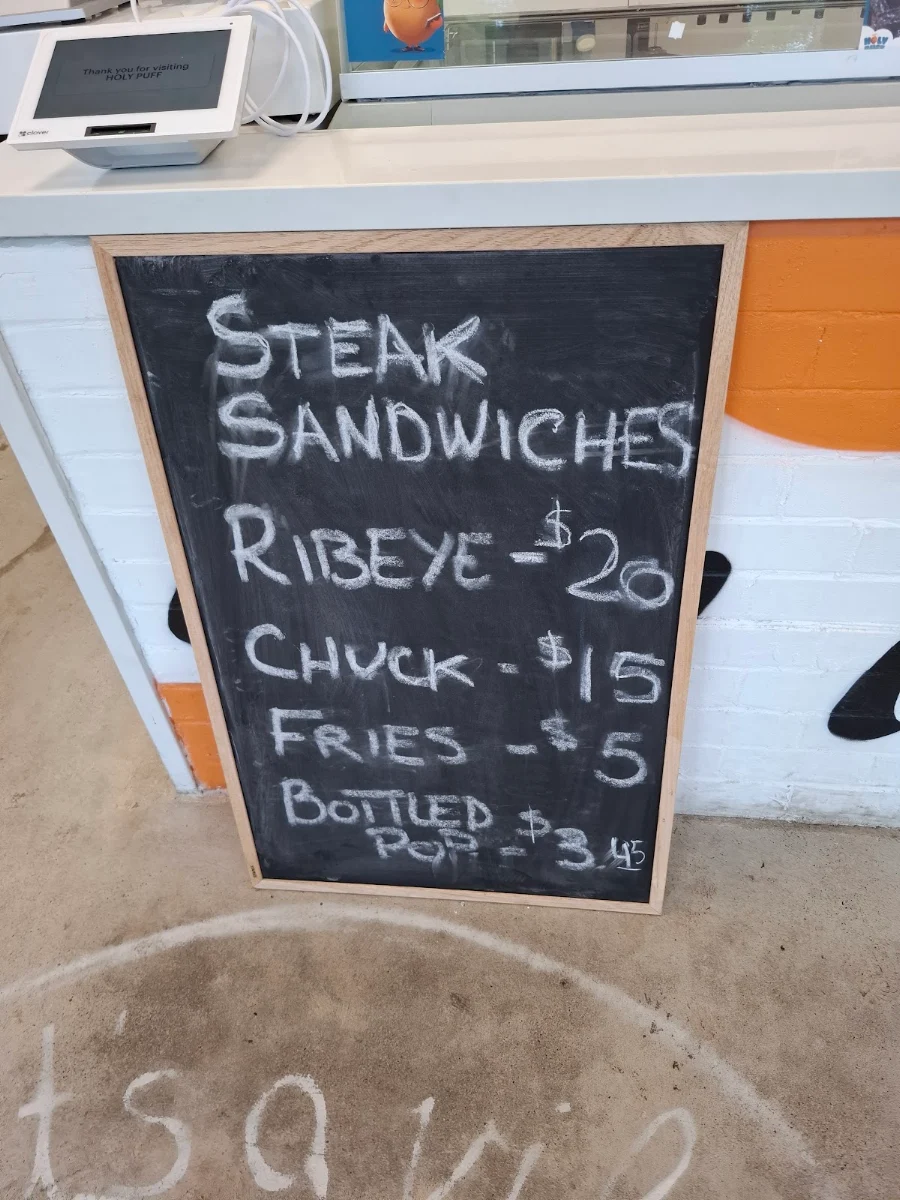 Thank you for visiting
HOLY PUFF
clover
HOLY
STEAK
SANDWICHES
RIBEYE - $20
CHUCK - $15
FRIES - $5
BOTTLED
POP. - $3.45
t's a